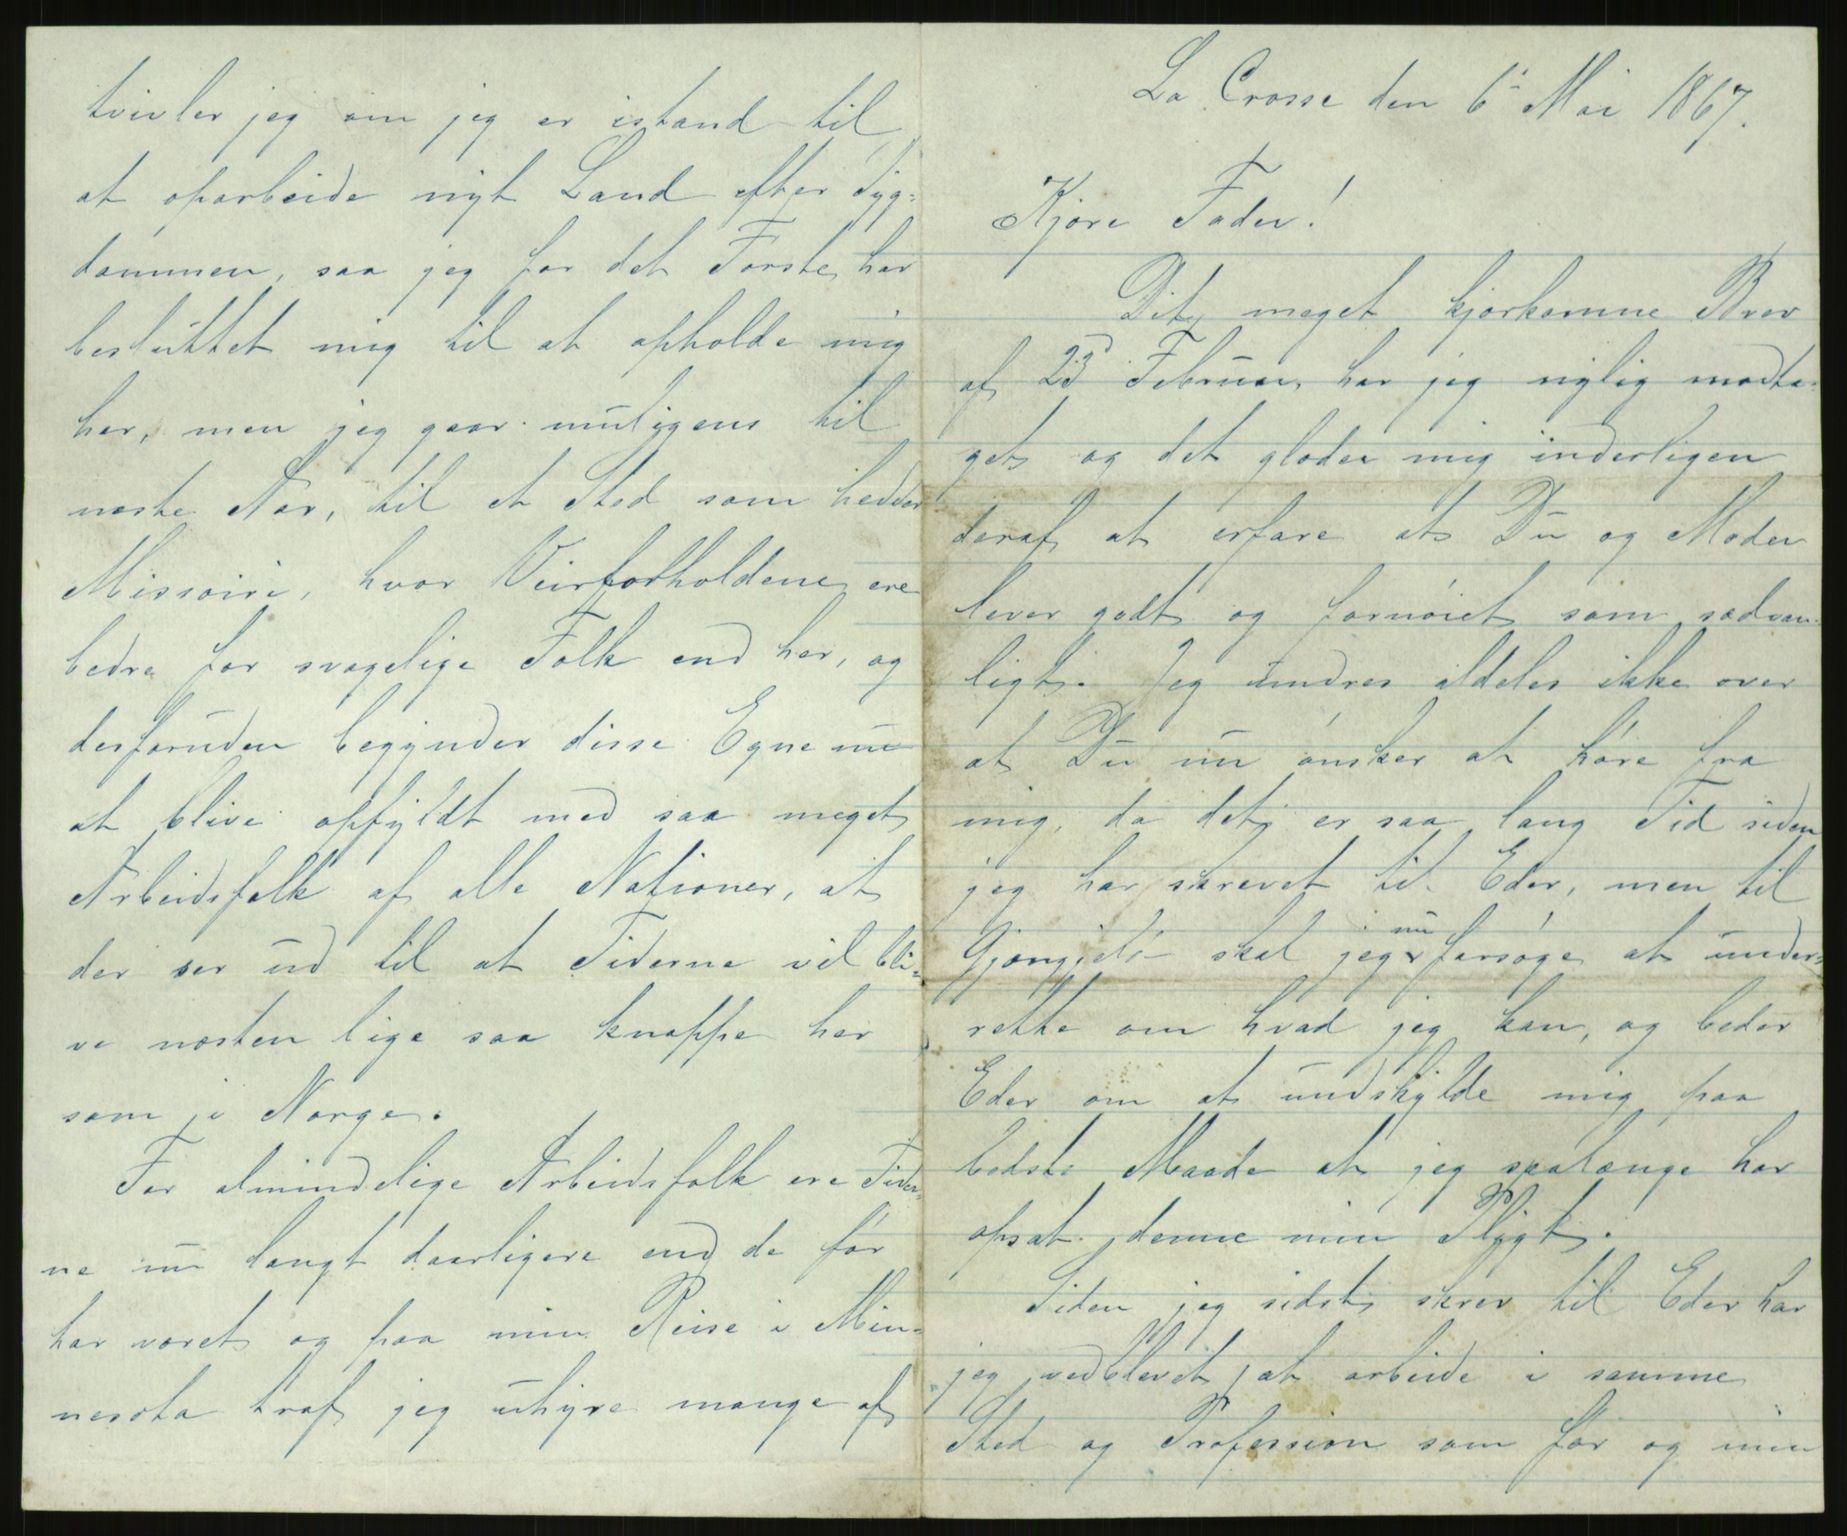 La Crosse den 6te Mai 1867.
Kjære Fader!
Dit meget kjærkomne Brev
af 23d Februar, har jeg rigtig modta-
get, og det glæder mig inderligen
deraf at erfare at Du og Moder
lever godt og fornøiet som sædvan-
ligt. Jeg undres aldeles ikke over
at Du nu ønsker at høre fra
mig, da det er saa lang Tid siden
jeg har skrevet til Eder, men til
Gjengjeld skal jeg nu forsøge at under-
rette om hvad jeg kan, og beder
Eder om at undskylde mig paa
bedste Maade at jeg saalænge har
opsat denne min Pligt.
Siden jeg sidst skrev til Eder har
jeg vedblevet at arbeide i samme
Sted og Profession som før og min
tvivler jeg om jeg er istand til
at oparbeide nyt Land efter Syg=
dommen, saa jeg for det Første har
besluttet mig til at opholde mig
her, men jeg gaar muligens til
næste Aar, til et Sted som hedder
Missoiri, hvor Veirforholdene ere
bedre for svagelige Folk end her, og
desforuden begynder disse Egne nu
at blive opfyldt med saa meget
Arbeidsfolk af alle Nationer, at
der ser ud til at Tiderne vil bli=
ve næsten lige saa knappe her
som i Norge.
For almindelige Arbeidsfolk ere Tider-
ne nu langt daarligere end de før
har været og paa min Reise i Min=
nesota traf jeg uhyre mange af